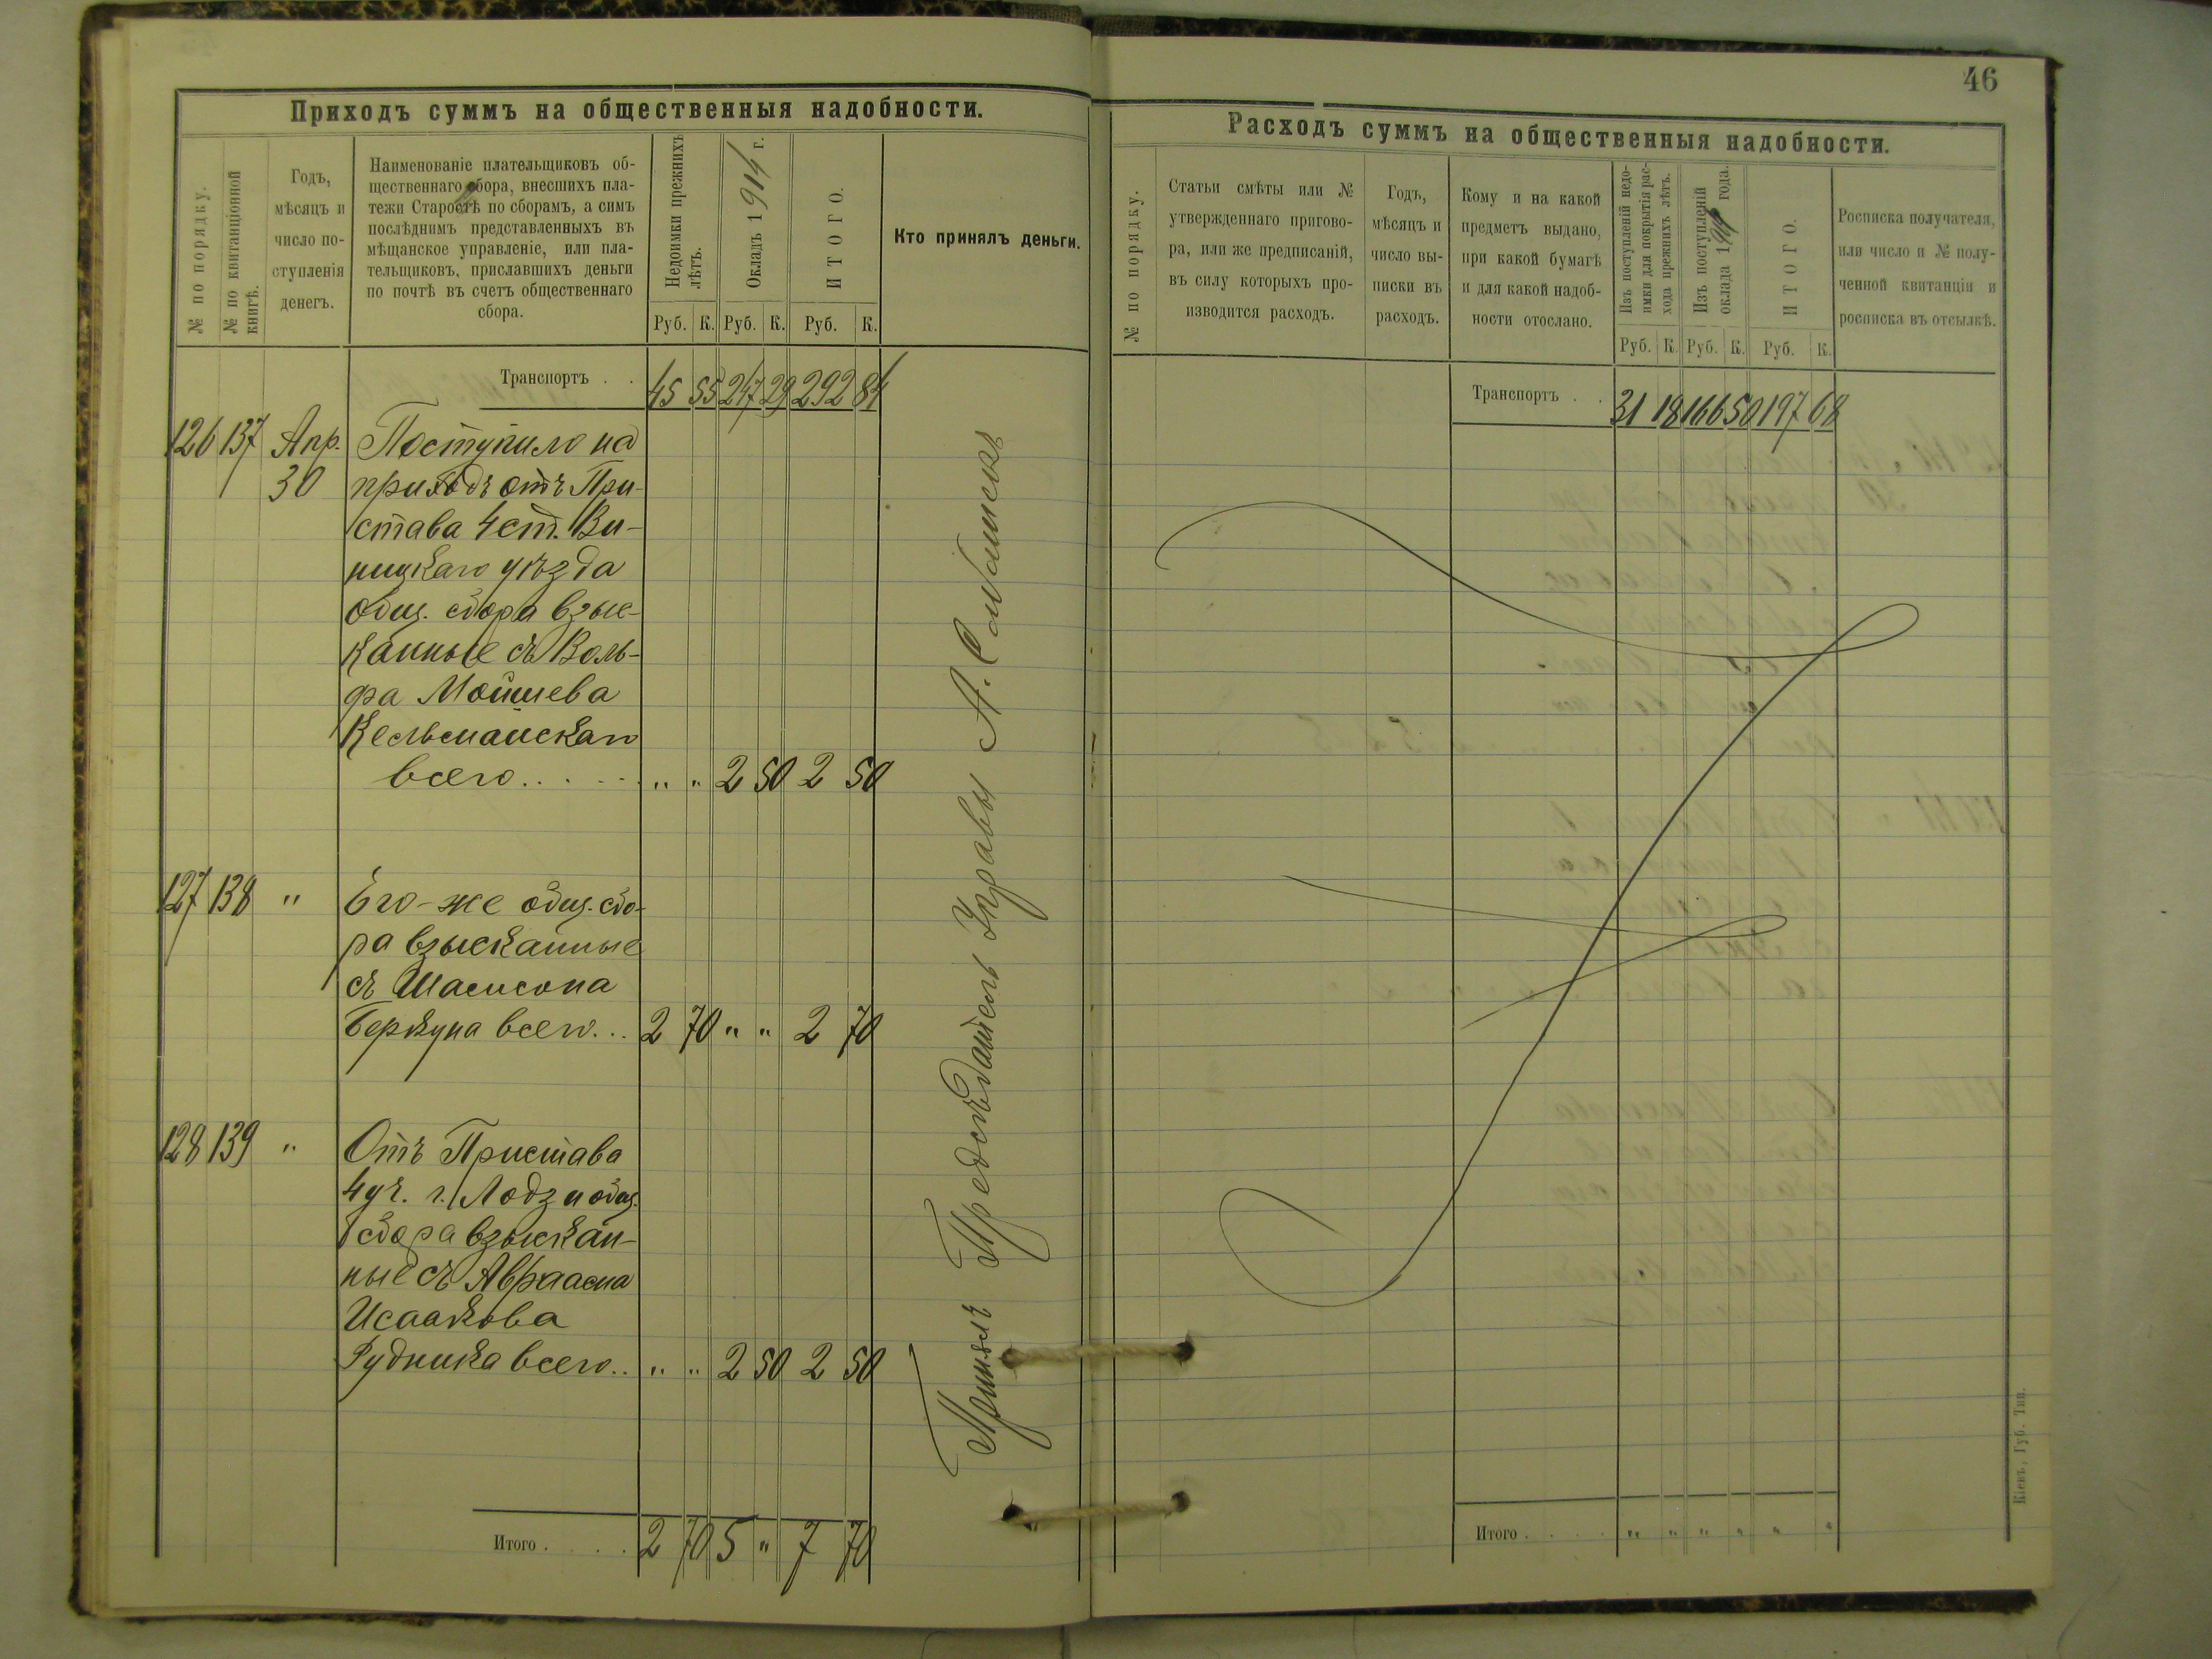 46
Приходъ суммъ на общественныя надобности.
№ по порядку.
№ по квитанціонной
книгѣ.
Годъ,
мѣсяцъ и
число по-
ступленія
денегъ.
Наименованіе плательщиковъ об-
щественнаго сбора, внесшихъ пла-
тежи Старостѣ по сборамъ, а симъ
послѣднимъ представленныхъ въ
мѣщанское управленіе, или пла-
тельщиковъ, приславшихъ деньги
по почтѣ въ счетъ общественнаго
сбора.
Недоимки прежнихъ
лѣтъ.
Окладъ 1914 г.
ИТОГО.
Кто принялъ деньги.
Руб. К. Руб. К. Руб. К.
Транспортъ . . 45 55 247 29 292 84
126 137 Апр. Поступило на
30 приходъ отъ При-
става 4 ст. Ви-
ницкаго уѣзда
общ. сбора взыс-
канные съ Воль-
фа Мойшева
всего. . . . . „ „ 2 50 2 50
127 138 „ Его-же общ. сбо-
ра взысканные
съ
всего. . . 2 70 „ „ 2 70
128 139 „ Отъ Пристава
4 уч. г. Лодзи общ.
сбора взыскан-
ные съ Авраама
Исаакова
Рудника всего. . „ „ 2 50 2 50
Итого . . . . 2 70 5 „ 7 70
Принялъ Предсѣдатель Управы А.
Расходъ суммъ на общественныя надобности.
№ по порядку.
Статьи смѣты или №
утвержденнаго пригово-
ра, или же предписаній,
въ силу которыхъ про-
изводится расходъ.
Годъ,
мѣсяцъ и
число вы-
писки въ
расходъ.
Кому и на какой
предметъ выдано,
при какой бумагѣ
и для какой надоб-
ности отослано.
Изъ поступленій недо-
имки для покрытія рас-
хода прежнихъ лѣтъ.
Изъ поступленій
оклада 1914 года.
ИТОГО.
Росписка получателя,
или число и № полу-
ченной квитанціи и
росписка въ отсылкѣ.
Руб. К. Руб. К. Руб. К.
Транспортъ . . 31 18 166 50 197 68
Итого . . . . „ „ „ „ „ „
Кіевъ, Губ. Тип.